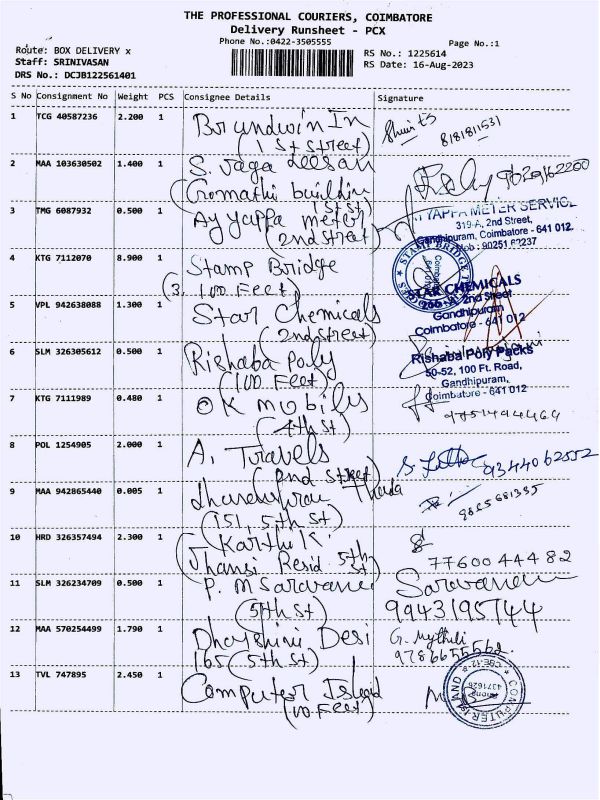 THE PROFESSIONAL COURIERS, COIMBATORE
Delivery Runsheet - PCX
Phone No.:0422-3505555
Page No.:1
Route: BOX DELIVERY x
Staff: SRINIVASAN
DRS No.: DCJB122561401
RS No.: 1225614
RS Date: 16-Aug-2023
S No Consignment No Weight PCS Consignee Details Signature
1 TCG 40587236 2.200 1 Brundwin In
(1 St street) 8181811531
2 MAA 103630502 1.400 1 S. Jaga
(Gomathi buildin 9629162200
1st st)
3 TMG 6087932 0.500 1 Ayyappa meter
(2nd street)
YAPPA METER SERVICE
319-A, 2nd Street,
Gandhipuram, Coimbatore - 641 012.
Mob : 90251 62237
4 KTG 7112070 8.900 1 Stamp Bridge
(3, 100 Feet)
STAMP BRIDGE
5 VPL 942638088 1.300 1 Star Chemicals
(2nd street)
STAR CHEMICALS
2nd Street
Gandhipuram
Coimbatore - 641 012
6 SLM 326305612 0.500 1 Rishaba Poly
(100 Feet)
Rishaba Poly Packs
50-52, 100 Ft. Road,
Gandhipuram,
Coimbatore - 641 012
7 KTG 7111989 0.480 1 OK mobiles
(4th st) 9751494464
8 POL 1254905 2.000 1 A. Travels
(2nd street) 9344062552
9 MAA 942865440 0.005 1
(151, 5th St) 9865681395
10 HRD 326357494 2.300 1 Karthik.
Jhansi Resid 5th St) 7760044482
11 SLM 326234709 0.500 1 P. M Saravanan Saravanan
(5th st) 9943195744
12 MAA 570254499 1.790 1 Dharshini Desi G. Mythili
165 (5th St) 9786655562
13 TVL 747895 2.450 1 Computer Island
(100 Feet)
COMPUTER ISLAND
CBE-12
Phone
4371626